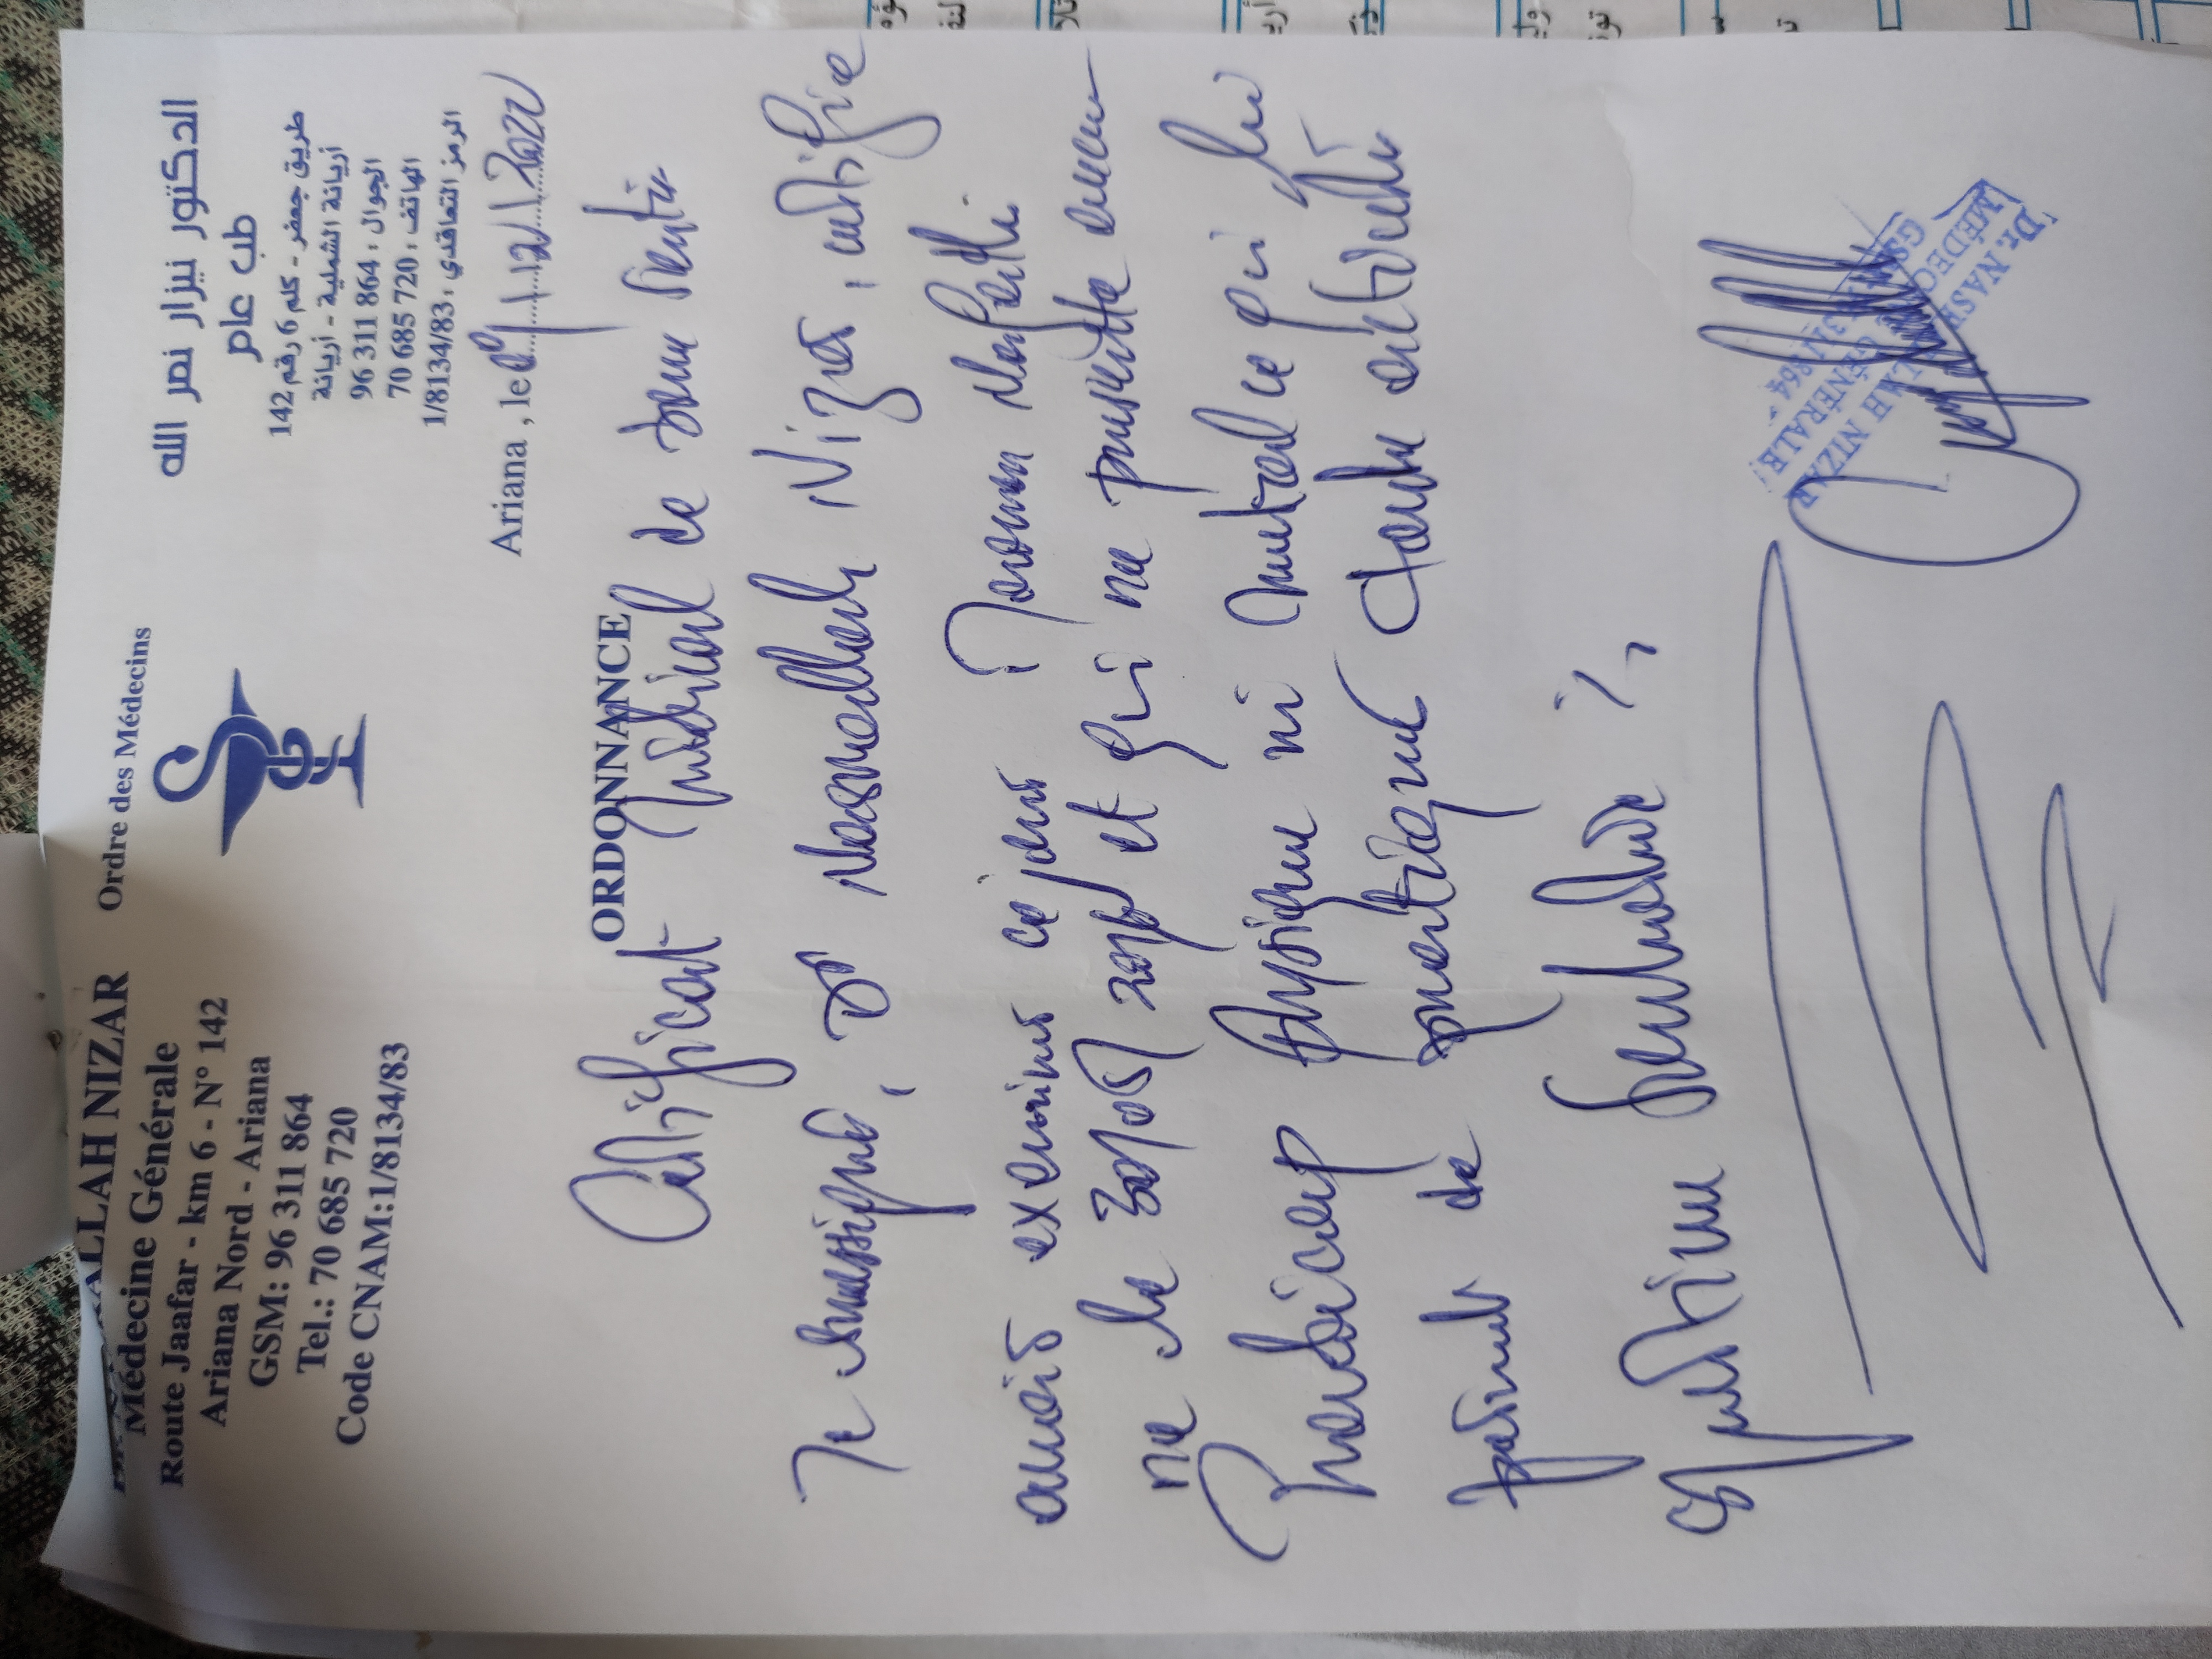 ALLAH NIZAR
Médecine Générale
Route Jaafar - km 6 - N° 142
Ariana Nord - Ariana
GSM: 96 311 864
Tel.: 70 685 720
Code CNAM:1/8134/83
Ordre des Médecins
الدكتور نيزار نصر الله
طب عام
طريق جعفر - كلم 6 رقم 142
أريانة الشمالية - أريانة
الجوال : 864 311 96
الهاتف : 720 685 70
الرمز التعاقدي : 1/8134/83
Ariana , le
ORDONNANCE
Certificat Médical de bonne santé
Je soussigné, Dr Nasrallah Nizar, certifie
avoir examiné ce jour
né le et qui ne présente aucun
handicap physique ni mental ce qui lui
permet de pratiquer toute activité
Dr. NASRALLAH NIZAR
MÉDECINE GÉNÉRALE